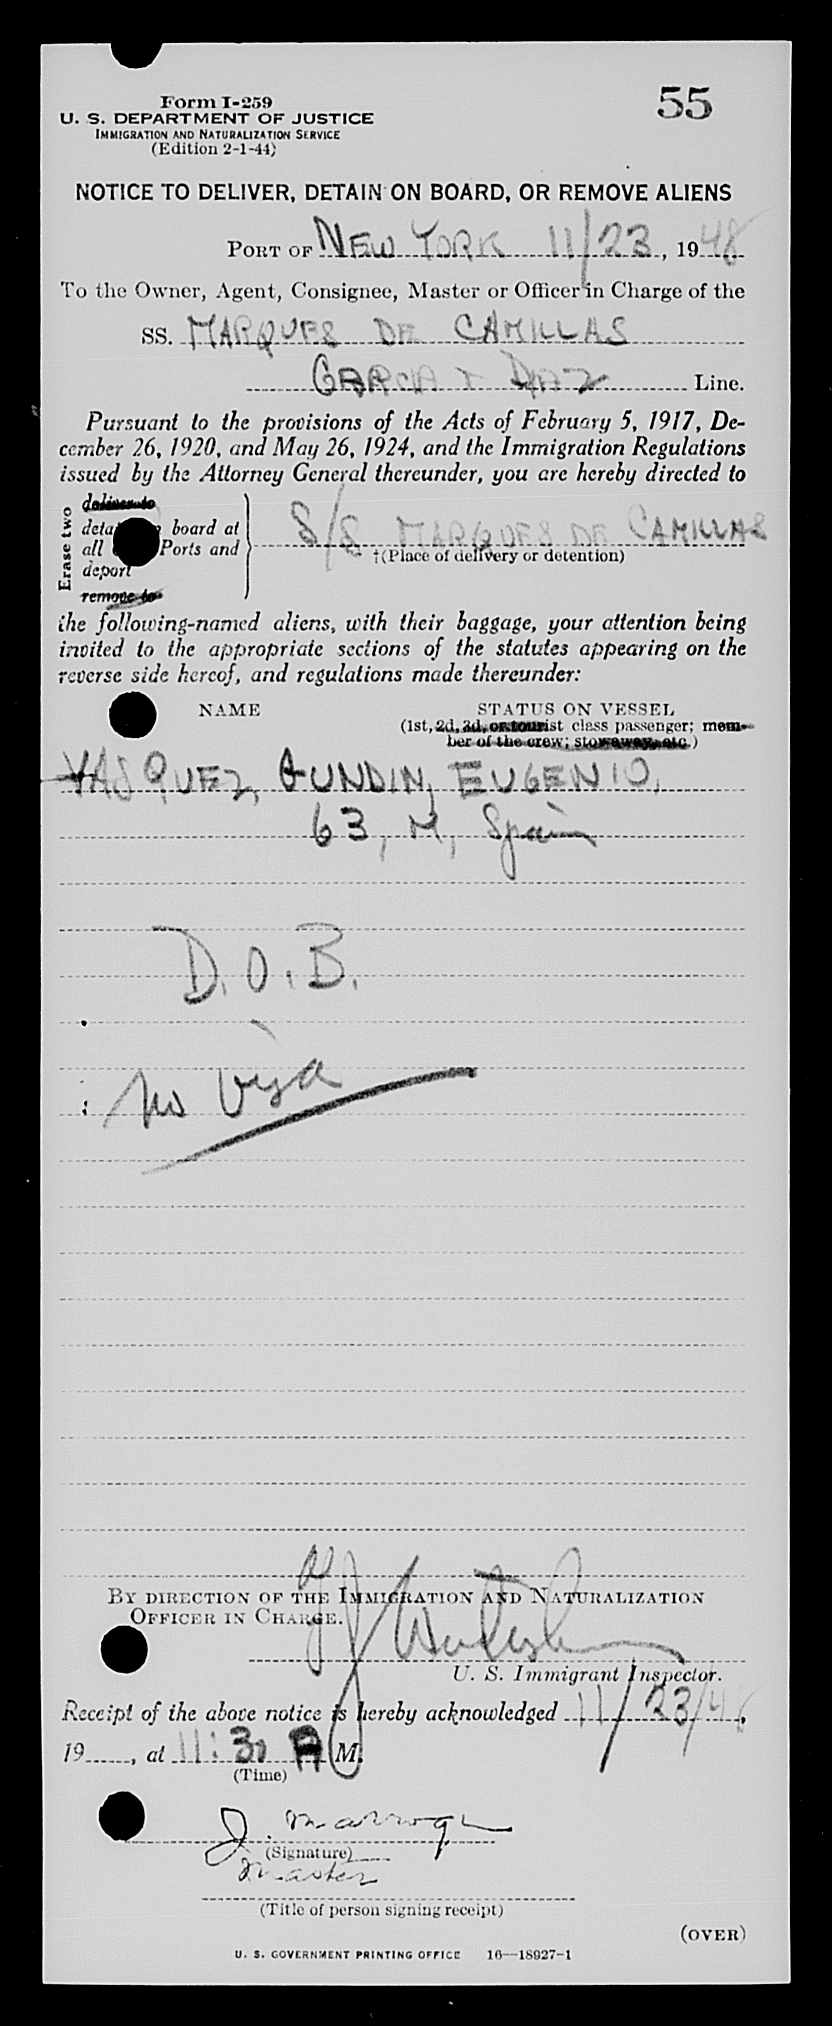 55
Form I-259
U. S. DEPARTMENT OF JUSTICE
IMMIGRATION AND NATURALIZATION SERVICE
(Edition 2-1-44)
NOTICE TO DELIVER, DETAIN ON BOARD, OR REMOVE ALIENS
PORT OF NEW YORK 11/23, 1948
To the Owner, Agent, Consignee, Master or Officer in Charge of the
SS. MARQUES DE CAMILLAS
GARCIA & DIAZ Line.
Pursuant to the provisions of the Acts of February 5, 1917, De-
cember 26, 1920, and May 26, 1924, and the Immigration Regulations
issued by the Attorney General thereunder, you are hereby directed to
Erase two
deliver to
board at
all Ports and
deport
remove to
S/S MARQUES DE CAMILLAS
†(Place of delivery or detention)
the following-named aliens, with their baggage, your attention being
invited to the appropriate sections of the statutes appearing on the
reverse side hereof, and regulations made thereunder:
NAME STATUS ON VESSEL
(1st, 2d, 3d, or tourist class passenger; mem-
ber of the crew; stowaway, etc.)
VASQUEZ, GUNDIN, EUGENIO,
63, M, Spain
D.O.B.
No Visa
BY DIRECTION OF THE IMMIGRATION AND NATURALIZATION
OFFICER IN CHARGE.
U. S. Immigrant Inspector.
Receipt of the above notice is hereby acknowledged 11/23/48,
19, at 11:30 A M.
(Time)
J.
(Signature)
Master
(Title of person signing receipt)
(OVER)
U. S. GOVERNMENT PRINTING OFFICE 16—18927-1